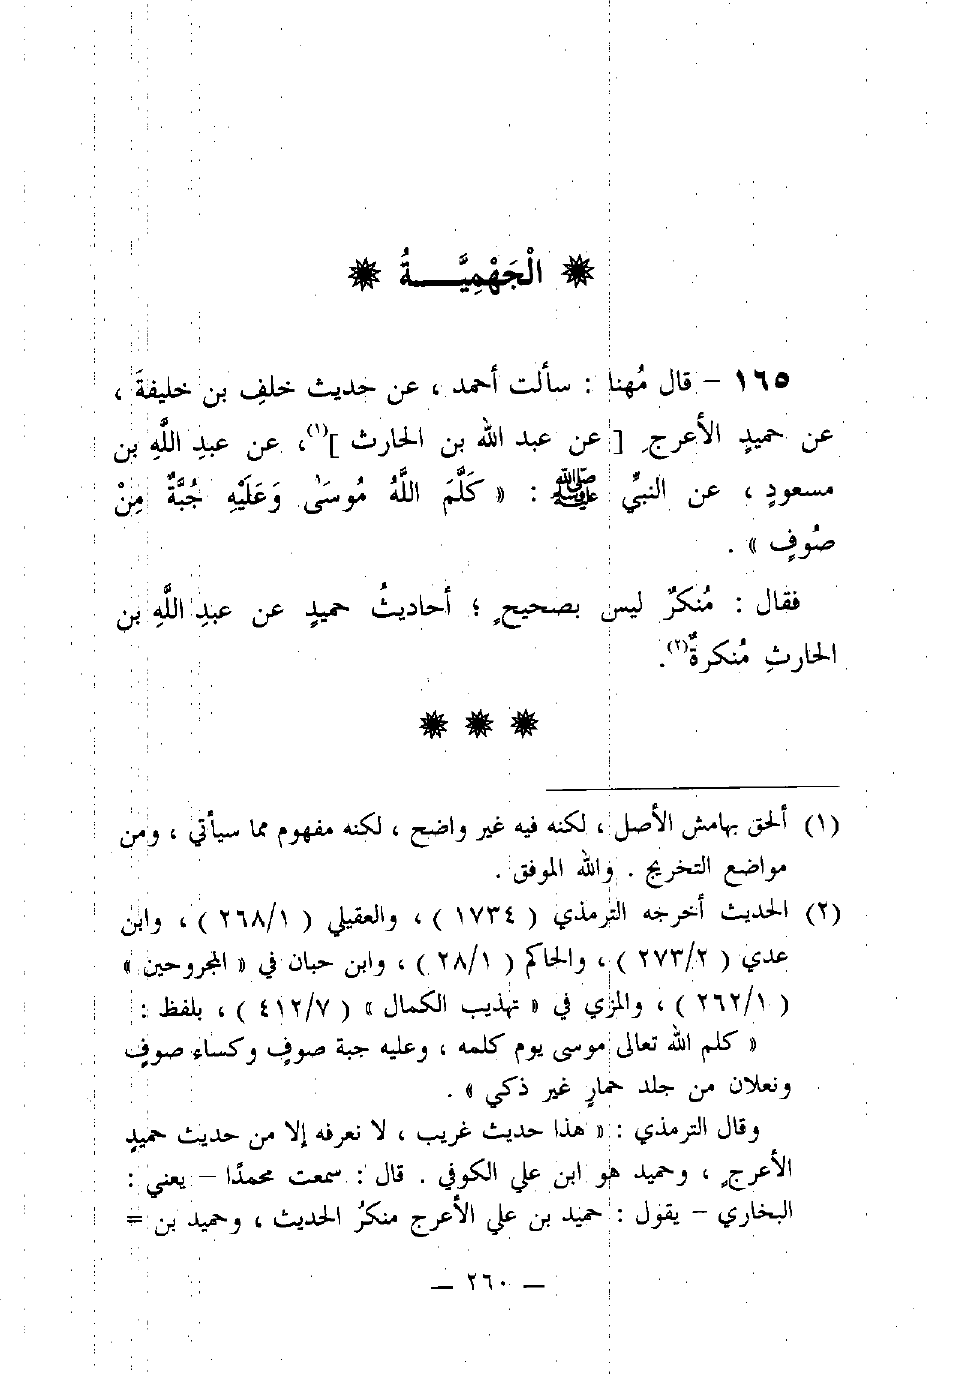 الْجَهْمِيَّـــةُ
١٦٥ – قال مُهنا : سألت أحمد ، عن حديث خلفِ بن خليفةَ ،
عن حميدٍ الأعرجِ [ عن عبد الله بن الحارث ](١)، عن عبدِ اللَّهِ بن
مسعودٍ ، عن النبيِّ ﷺ : « كَلَّمَ اللَّهُ مُوسَىٰ وَعَلَيْهِ جُبَّةٌ مِنْ
صُوفٍ » .
فقال : مُنكرٌ ليس بصحيحٍ ؛ أحاديثُ حميدٍ عن عبدِ اللَّهِ بن
الحارثِ مُنكرةٌ(٢).
(١) ألحق بهامش الأصل ، لكنه فيه غير واضح ، لكنه مفهوم مما سيأتي ، ومن
مواضع التخريج . والله الموفق .
(٢) الحديث أخرجه الترمذي ( ١٧٣٤ ) ، والعقيلي ( ٢٦٨/١ ) ، وابن
عدي ( ٢٧٣/٢ ) ، والحاكم ( ٢٨/١ ) ، وابن حبان في « المجروحين »
( ٢٦٢/١ ) ، والمزي في « تهذيب الكمال » ( ٤١٢/٧ ) ، بلفظ :
« كلم الله تعالى موسى يوم كلمه ، وعليه جبة صوفٍ وكساء صوفٍ
ونعلان من جلد حمارٍ غير ذكي » .
وقال الترمذي : « هذا حديث غريب ، لا نعرفه إلا من حديث حميدٍ
الأعرجِ ، وحميد هو ابن علي الكوفي . قال : سمعت محمدًا – يعني :
البخاري – يقول : حميد بن علي الأعرج منكرُ الحديث ، وحميد بن =
— ٢٦٠ —